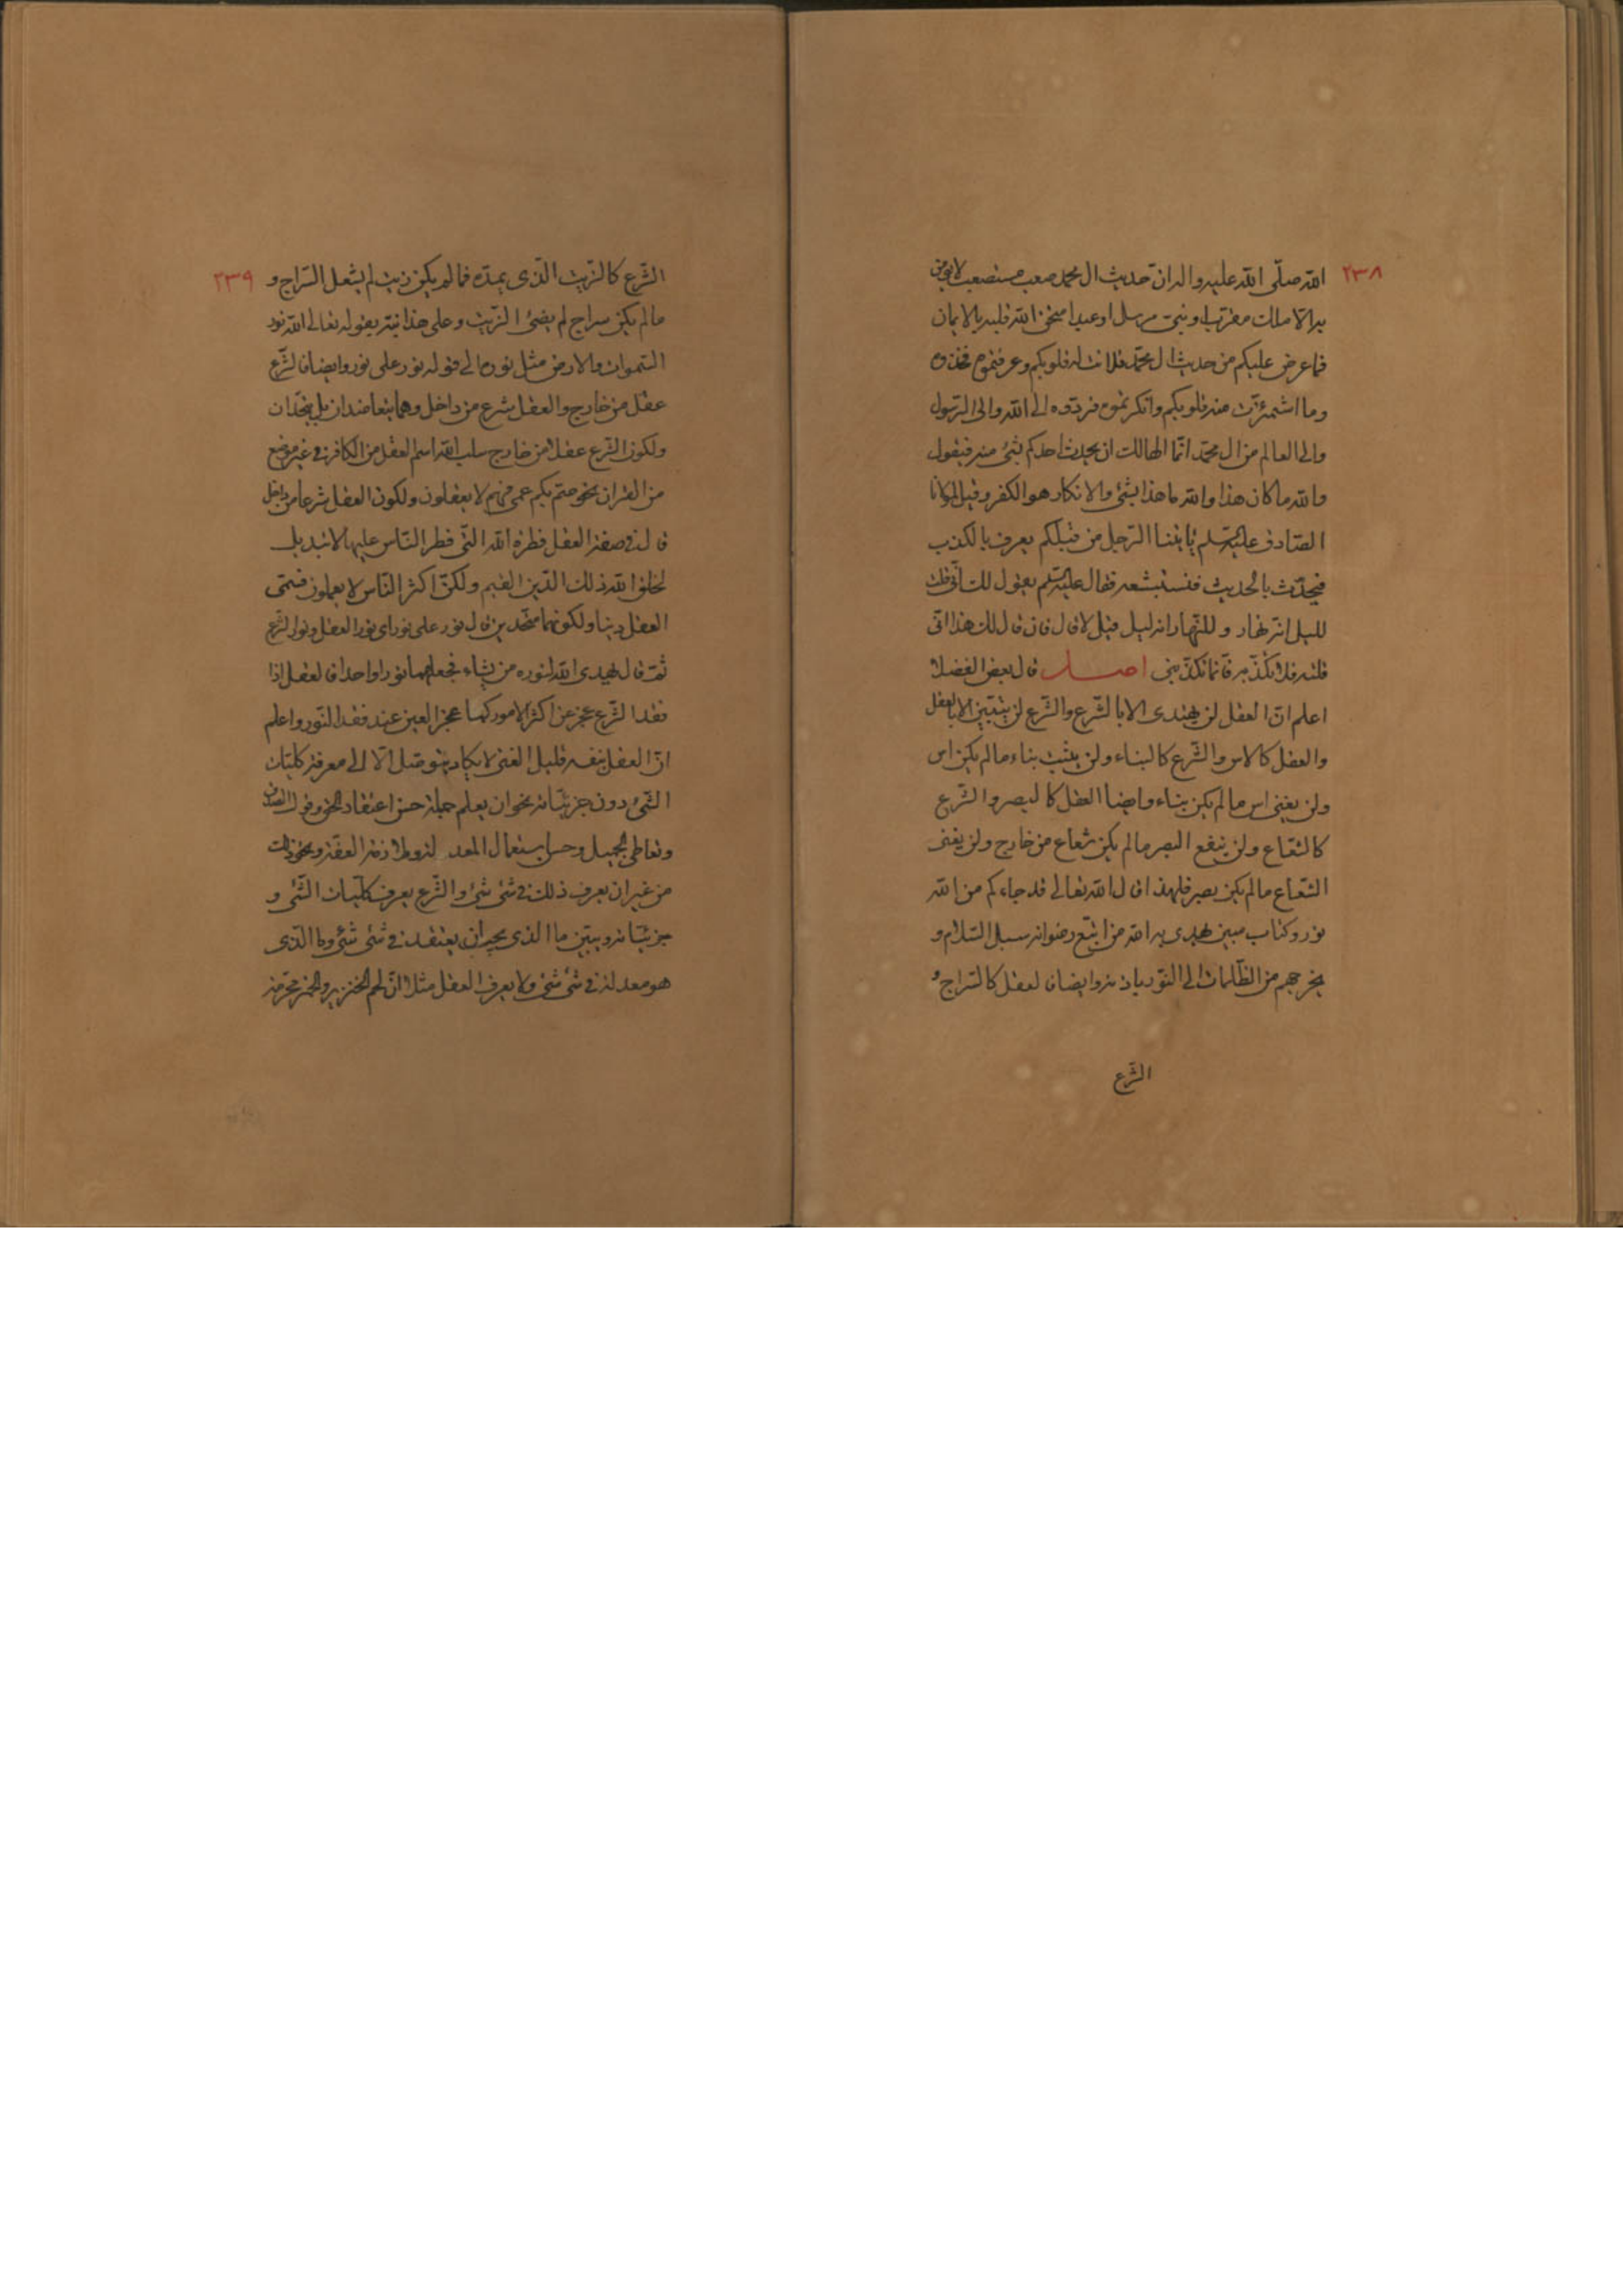 ٢٣٨
الله صلّى الله عليه واله ان حديث ال محمد صعب مستصعب لا يؤمن
به الا ملك مقرّب او نبىّ مرسل او عبد امتحن الله قلبه بالايمان
فما عرض عليكم من حديث ال محمّد فلانت له قلوبكم وعرفتموه فخذوه
وما اشمئزّت منه قلوبكم وانكرتموه فردّوه الى الله والى الرّسول
والى العالم من ال محمّد انّما الهالك ان يحدث احدكم بشئ منه فيقول
والله ما كان هذا والله ما هذا بشئ والانكار هو الكفر وقيل لمولانا
الصّادق عليه السّلم يأتينا الرّجل من قبلكم يعرف بالكذب
فيحدّث بالحديث فنستبشعه فقال عليه السّلم يقول لك انّى قلت
لليل انّه نهار و للنّهار انه ليل قيل لا قال فان قال لك هذا انّى
قلته فلا تكذّب به فانّما تكذّبنى اصل قال بعض الفضلا
اعلم انّ العقل لن يهتدى الا بالشّرع والشّرع لن يتبيّن الا بالعقل
والعقل كالاس والشّرع كالبناء ولن يثبت بناء ما لم يكن اس
ولن يغنى اس ما لم يكن بناء وايضا العقل كالبصر والشّرع
كالشّعاع ولن ينفع البصر ما لم يكن شعاع من خارج ولن يغنى
الشّعاع ما لم يكن بصر فلهذا قال الله تعالى قد جاءكم من الله
نور وكتاب مبين يهدى به الله من اتّبع رضوانه سبل السّلام و
يخرجهم من الظّلمات الى النّور باذنه وايضا فالعقل كالسّراج و
الشّرع
٢٣٩
الشّرع كالزّيت الّذى يمدّه فما لم يكن زيت لم يشعل السّراج و
ما لم يكن سراج لم يضئ الزّيت وعلى هذا نبّه بقوله تعالى الله نور
السّموات والارض مثل نوره الى قوله نور على نور وايضا فالشّرع
عقل من خارج والعقل شرع من داخل وهما يتعاضدان بل يتّحدان
ولكون الشّرع عقلا من خارج سلب الله اسم العقل من الكافر فى غير موضع
من القران نحو صمّ بكم عمى فهم لا يعقلون ولكون العقل شرعا من داخل
قال فى صفة العقل فطرة الله الّتى فطر النّاس عليها لا تبديل
لخلق الله ذلك الدّين القيم ولكنّ اكثر النّاس لا يعلمون فسمّى
العقل دينا ولكونهما متّحدين قال نور على نور اى نور العقل ونور الشّرع
ثمّ قال يهدى الله لنوره من يشاء فجعلهما نورا واحدا فالعقل اذا
فقد الشّرع عجز عن اكثر الامور كما عجز العين عند فقد النّور واعلم
انّ العقل بنفسه قليل الغنى لا يكاد يتوصّل الّا الى معرفة كليّات
الشّئ دون جزئيّاته نحو ان يعلم جملة حسن اعتقاد الحق وقول الصّدق
وتعاطى الجميل وحسن استعمال المعدلة وملازمة العفّة ونحو ذلك
من غير ان يعرف ذلك فى شئ شئ والشّرع يعرف كلّيات الشّئ و
جزئيّاته ويبيّن ما الذى يجب ان يعتقد فى شئ شئ وما الّذى
هو معدلة فى شئ شئ ولا يعرف العقل مثلا انّ لحم الخنزير والخمر محرّمة